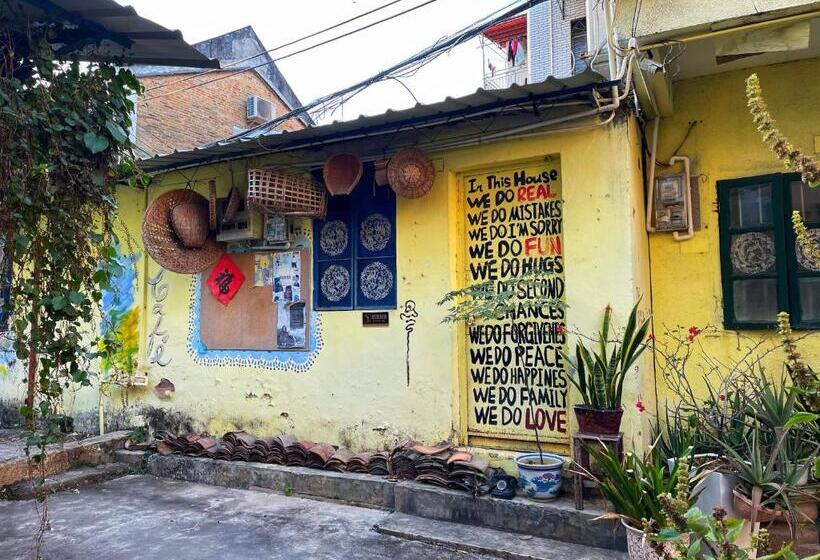 In This House
WE DO REAL
WE DO MISTAKES
WE DO I'M SORRY
WE DO FUN
WE DO HUGS
WE DO SECOND
CHANCES
WE DO FORGIVENES
WE DO PEACE
WE DO HAPPINES
WE DO FAMILY
WE DO LOVE
Café